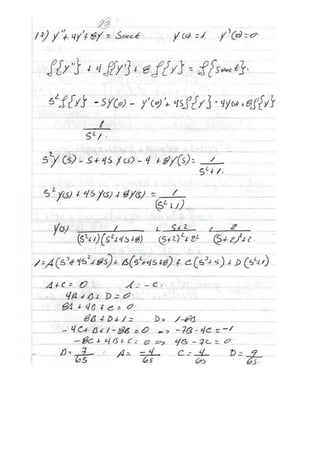 23
17) y'' + 4y' + 8y = Sent y(0) = 1 y'(0) = 0
ℒ{y''} + 4ℒ{y'} + 8ℒ{y} = ℒ{sent}.
s²ℒ{y} - sy(0) - y'(0) + 4sℒ{y} - 4y(0) + 8ℒ{y}
1
s²+1.
s²y(s) - s + 4s y(s) - 4 + 8y(s) = 1/(s²+1).
s²y(s) + 4s y(s) + 8y(s) = 1/(s²+1)
y(s) 1/((s²+1)(s²+4s+8)) + (s+2)/((s+2)²+2²) + 2/((s+2)²+2
1 = A(s³+4s²+8s) + B(s²+4s+8) + C(s³+s) + D(s²+1)
A+C = 0 A = -C
4A + B + D = 0
8A + 4B + C = 0
8B + D + 1 = D = 1-8B
-4C + B + 1 - 8B = 0 => -7B - 4C = -1
-8C + 4B + C = 0 => 4B - 7C = 0
B = 7/65 A = -4/65 C = 4/65 D = 9/65.